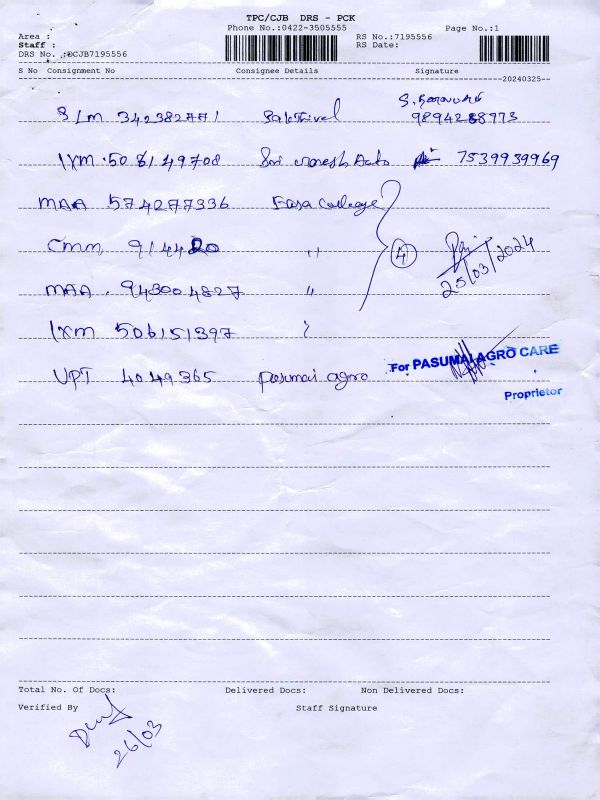 TPC/CJB DRS - PCK
Phone No.:0422-3505555
Page No.:1
Area :
RS No.:7195556
Staff :
RS Date:
DRS No. :@CJB7195556
S No Consignment No Consignee Details Signature
20240325
SLM 342382771 Sakthivel
IXM 508149708 Sri Auto 7539939969
MAA 574277336 Easa College
CMM 914420 "
4
25/03/2024
MAA . 943004827 "
IXM 506151397 "
UPT 4049365 pasumai agro
For PASUMAI AGRO CARE
Proprietor
Total No. Of Docs: Delivered Docs: Non Delivered Docs:
Verified By Staff Signature
26/03